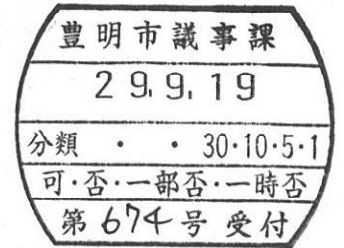 豊明市議事課
29.9.19
分類 ・ ・ 30・10・5・1
可・否・一部否・一時否
第674号 受付